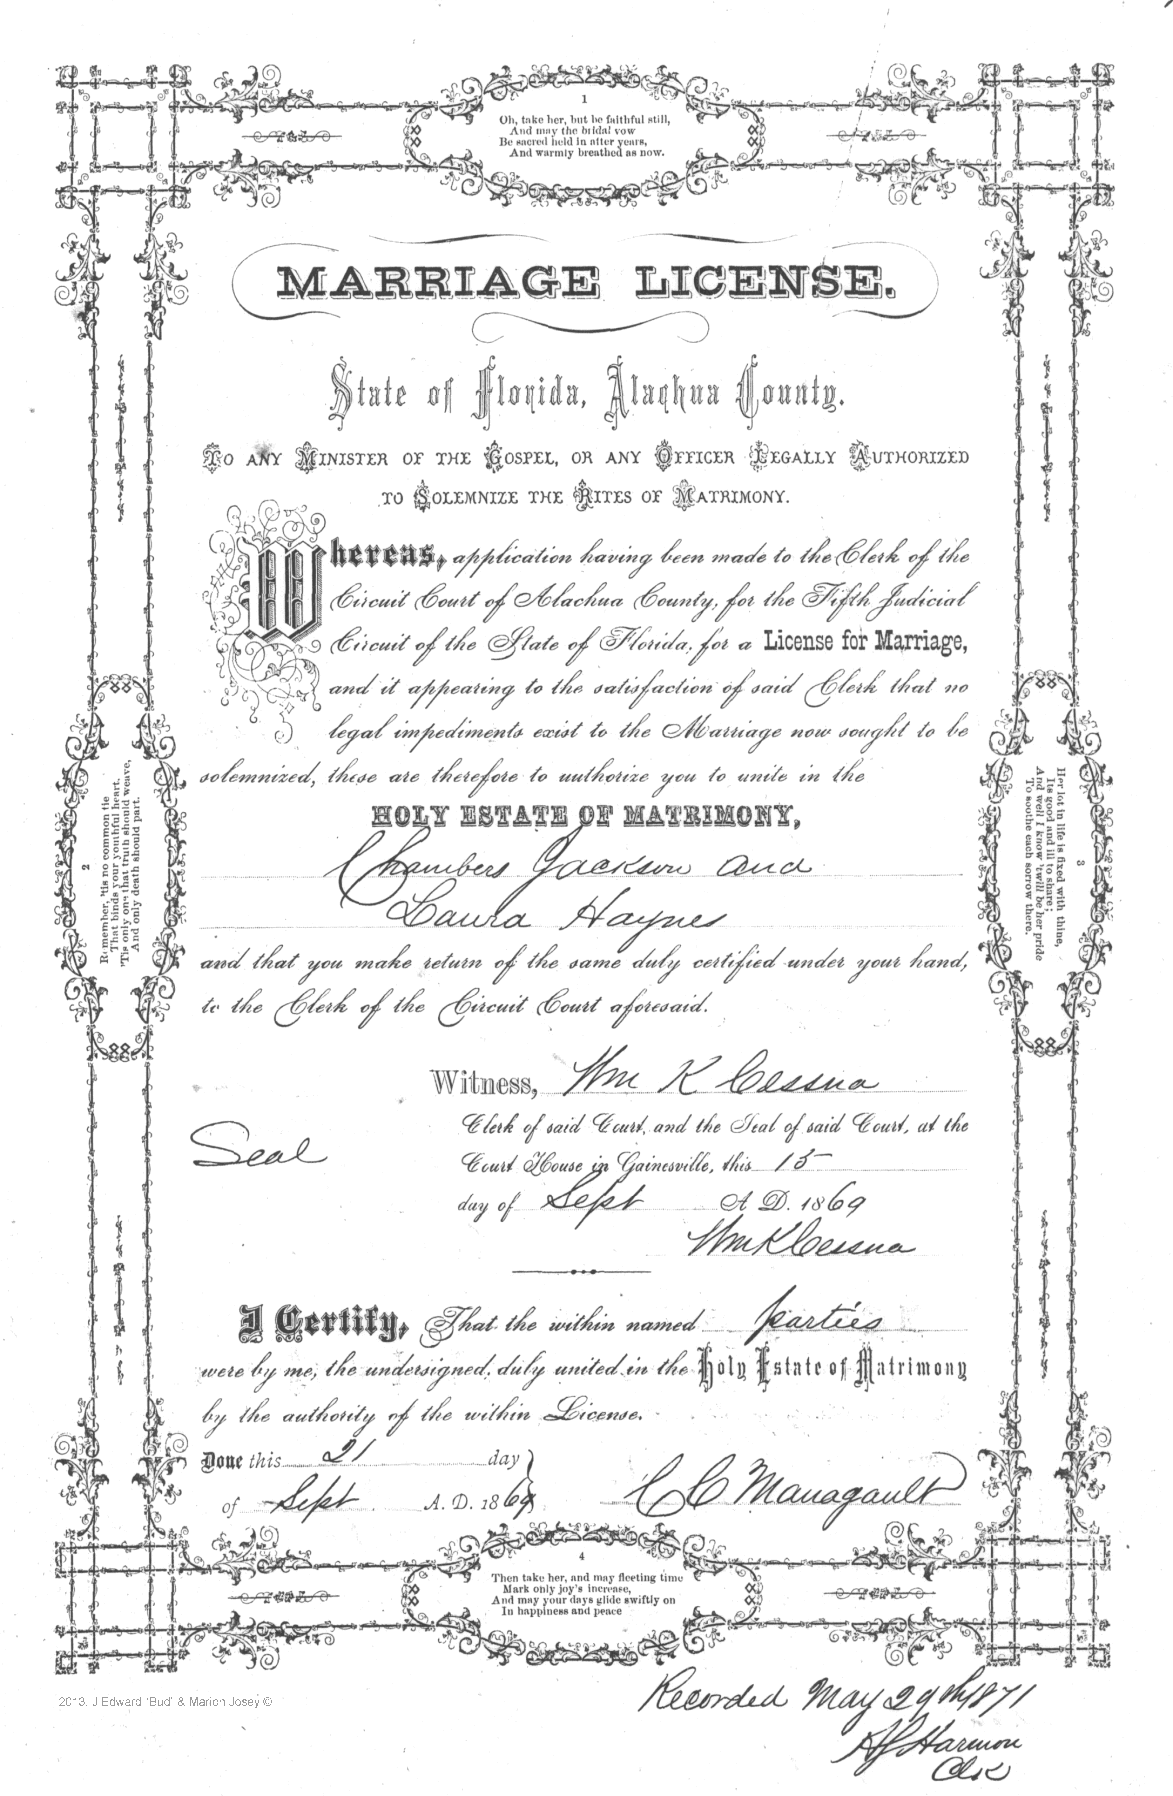 1
Oh, take her, but be faithful still,
And may the bridal vow
Be sacred held in after years,
And warmly breathed as now.
MARRIAGE LICENSE.
State of Florida, Alachua County.
TO ANY MINISTER OF THE GOSPEL, OR ANY OFFICER LEGALLY AUTHORIZED
TO SOLEMNIZE THE RITES OF MATRIMONY.
Whereas, application having been made to the Clerk of the
Circuit Court of Alachua County, for the Fifth Judicial
Circuit of the State of Florida, for a License for Marriage,
and it appearing to the satisfaction of said Clerk that no
legal impediments exist to the Marriage now sought to be
solemnized, these are therefore to authorize you to unite in the
HOLY ESTATE OF MATRIMONY,
Chambers Jackson and
Laura Haynes
and that you make return of the same duly certified under your hand,
to the Clerk of the Circuit Court aforesaid.
Witness, Wm K Cessna
Clerk of said Court, and the Seal of said Court, at the
Seal
Court House in Gainesville, this 15
day of Sept A. D. 1869
Wm K Cessna
I Certify, That the within named parties
were by me, the undersigned, duly united in the Holy Estate of Matrimony
by the authority of the within License.
Done this 21 day
of Sept A. D. 1869
C C Managault
2
Remember, 'tis no common tie
That binds your youthful heart,
'Tis only one that truth should weave,
And only death should part.
3
Her lot in life is fixed with thine,
Its good and ill to share;
And well I know 'twill be her pride
To soothe each sorrow there.
4
Then take her, and may fleeting time
Mark only joy's increase,
And may your days glide swiftly on
In happiness and peace
2013. J Edward 'Bud' & Marion Josey ©
Recorded May 29th 1871
Harmon
Clk